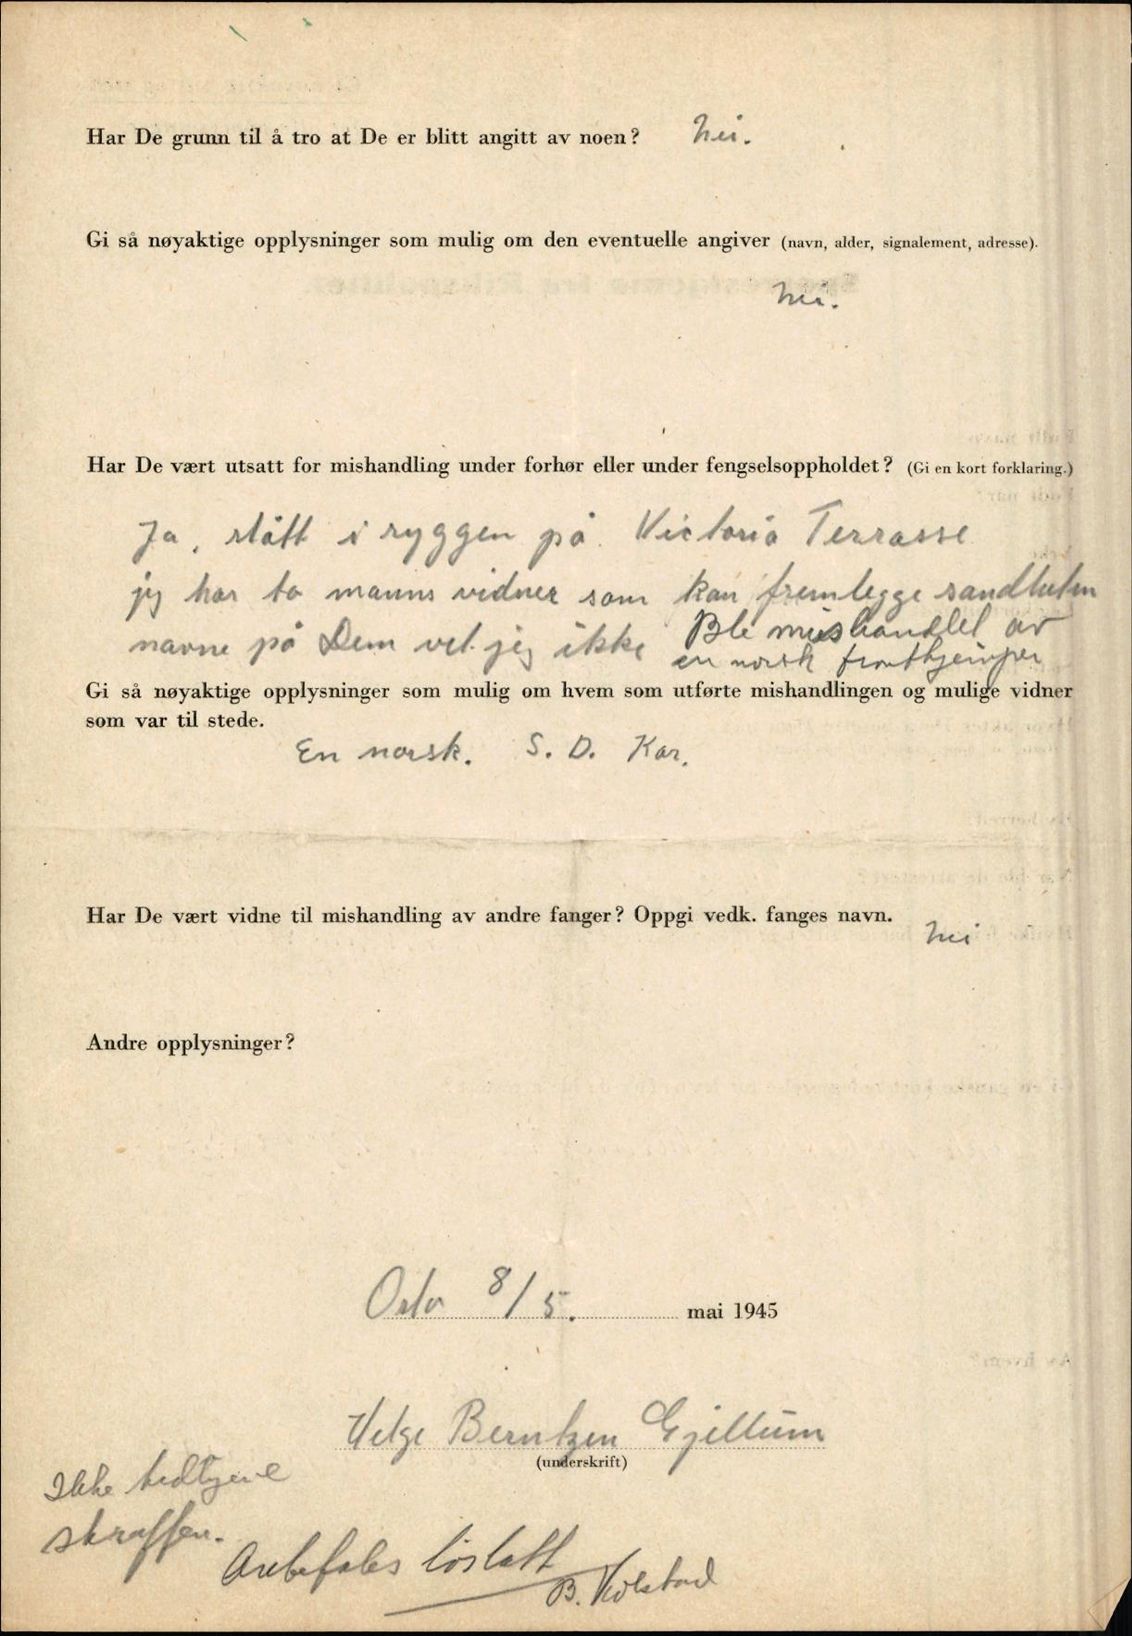 Har De grunn til å tro at De er blitt angitt av noen? Nei.
Gi så nøyaktige opplysninger som mulig om den eventuelle angiver (navn, alder, signalement, adresse).
Nei.
Har De vært utsatt for mishandling under forhør eller under fengselsoppholdet? (Gi en kort forklaring.)
Ja, slått i ryggen på Victoria Terrasse
jeg har to manns vidner som kan fremlegge sandheten
navne på Dem vet jeg ikke Ble mishandlet av
en norsk frontkjemper
Gi så nøyaktige opplysninger som mulig om hvem som utførte mishandlingen og mulige vidner
som var til stede.
En norsk. S. D. Kar.
Har De vært vidne til mishandling av andre fanger? Oppgi vedk. fanges navn.
Nei
Andre opplysninger?
Oslo 8/5. mai 1945
Helge Berntzen Gjellum
(underskrift)
Ikke
straffen.
Anbefales løslatt
B. Kolstad